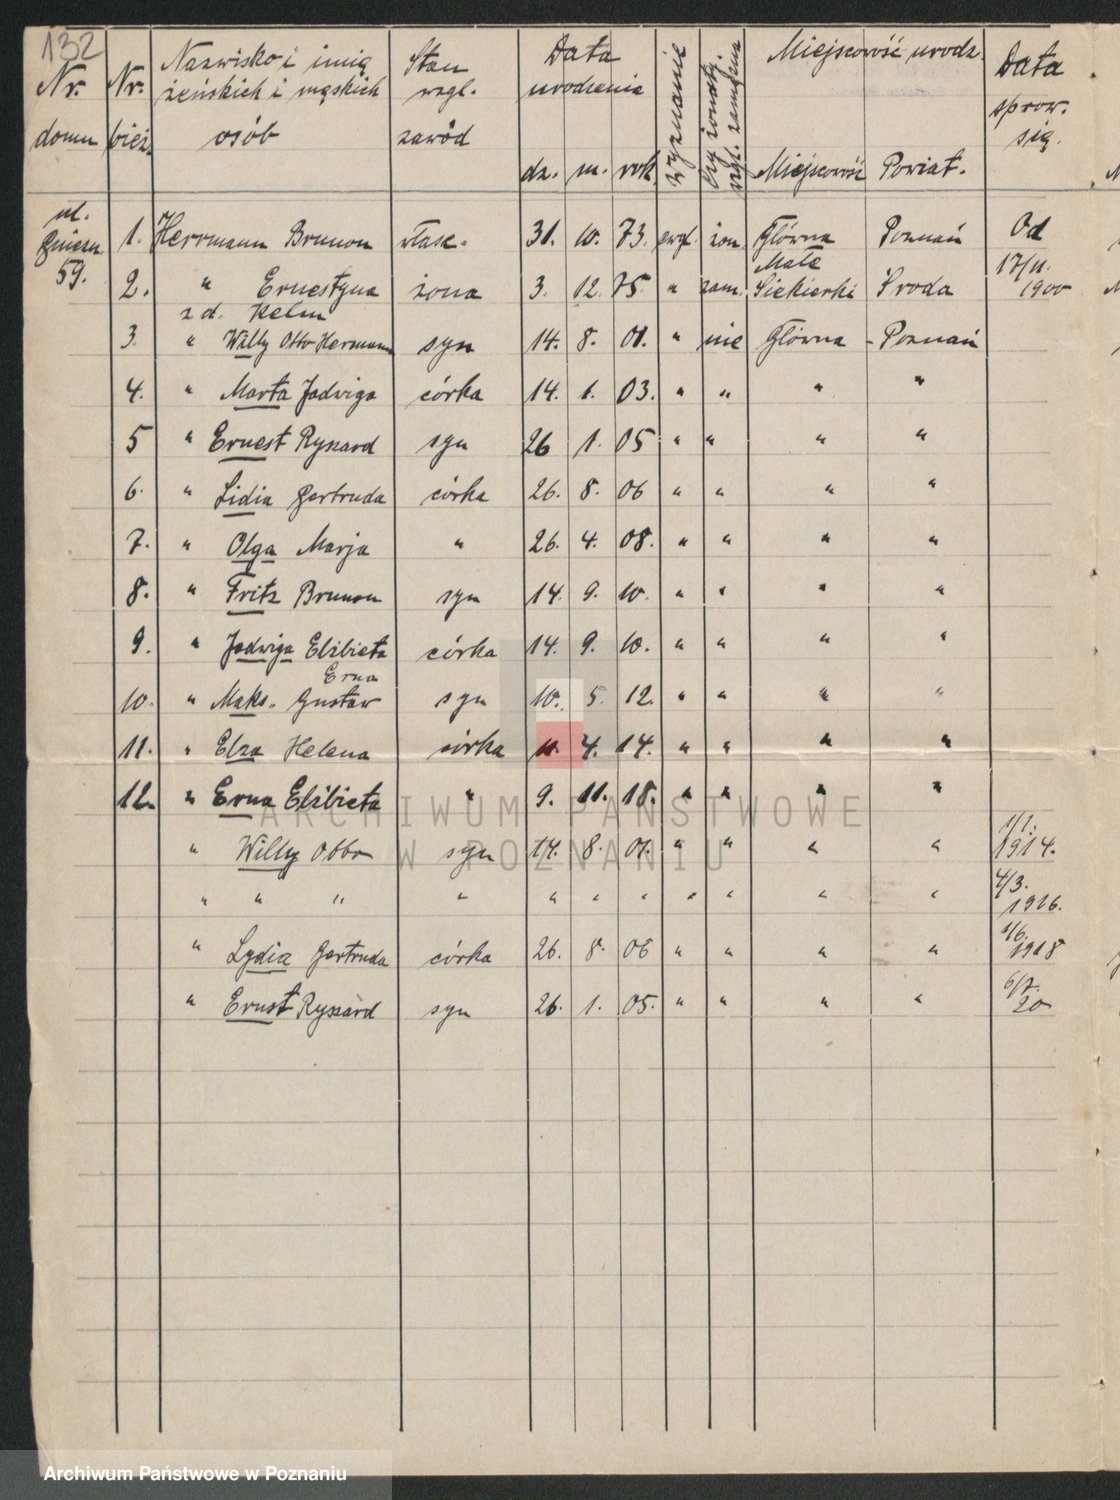 132
Nr. domu | Nr. bież. | Nazwisko i imię żeńskich i męskich osób | Stan wzgl. zawód | Data urodzenia dz. m. rok | Wyznanie | Czy żonaty. wzgl. zamężna | Miejscowość urodz. Miejscowość Powiat. | Data sprow. się.
ul. Gniezn. 59. | 1. | Herrmann Brunon | włase. | 31. | 10. | 73. | ewgl. | żon. | Główna | Poznań | Od 17/11. 1900
2. | " Ernestyna z d. Kelm | żona | 3. | 12. | 75. | " | zam. | Małe Siekierki | Środa
3. | " Willy Otto Hermann | syn | 14. | 8. | 01. | " | nie | Główna | - Poznań
4. | " Marta Jadwiga | córka | 14. | 1. | 03. | " | " | " | "
5 | " Ernest Ryszard | syn | 26 | 1. | 05 | " | " | " | "
6. | " Lidia Gertruda | córka | 26. | 8. | 06 | " | " | " | "
7. | " Olga Marja | " | 26. | 4. | 08. | " | " | " | "
8. | " Fritz Brunon | syn | 14. | 9. | 10. | " | " | " | "
9. | " Jadwiga Elżbieta Erna | córka | 14. | 9. | 10. | " | " | " | "
10. | " Maks. Gustaw | syn | 10. | 5. | 12. | " | " | " | "
11. | " Elza Helena | córka | 11. | 4. | 14. | " | " | " | "
12. | " Erna Elżbieta | " | 9. | 11. | 18. | " | " | " | "
" Willy Otto | syn | 14. | 8. | 01. | " | " | " | " | 1/1. 1914.
" " " | " | " | " | " | " | " | " | " | 4/3. 1916.
" Lydia Gertruda | córka | 26. | 8. | 06 | " | " | " | " | 1/6. 1918
" Ernst Ryszard | syn | 26. | 1. | 05. | " | " | " | " | 6/7. 20
ARCHIWUM PAŃSTWOWE
W POZNANIU
Archiwum Państwowe w Poznaniu